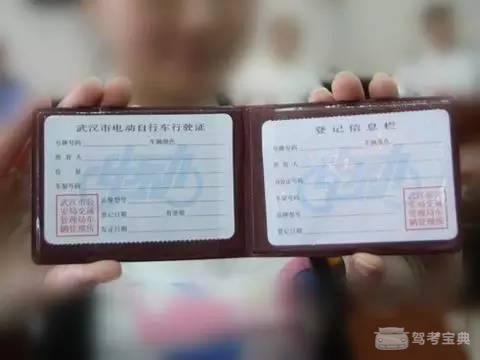 武汉市电动自行车行驶证
号牌号码 车辆颜色
所有人
住址
车架号码
品牌型号
登记日期 有效期
发证日期
武汉市公
安局交通
管理局车
辆管理所
登记信息栏
号牌号码 车辆颜色
所有人
身份证号码
车架号码
品牌型号
登记日期
武汉市公
安局交通
管理局车
辆管理所
驾考宝典